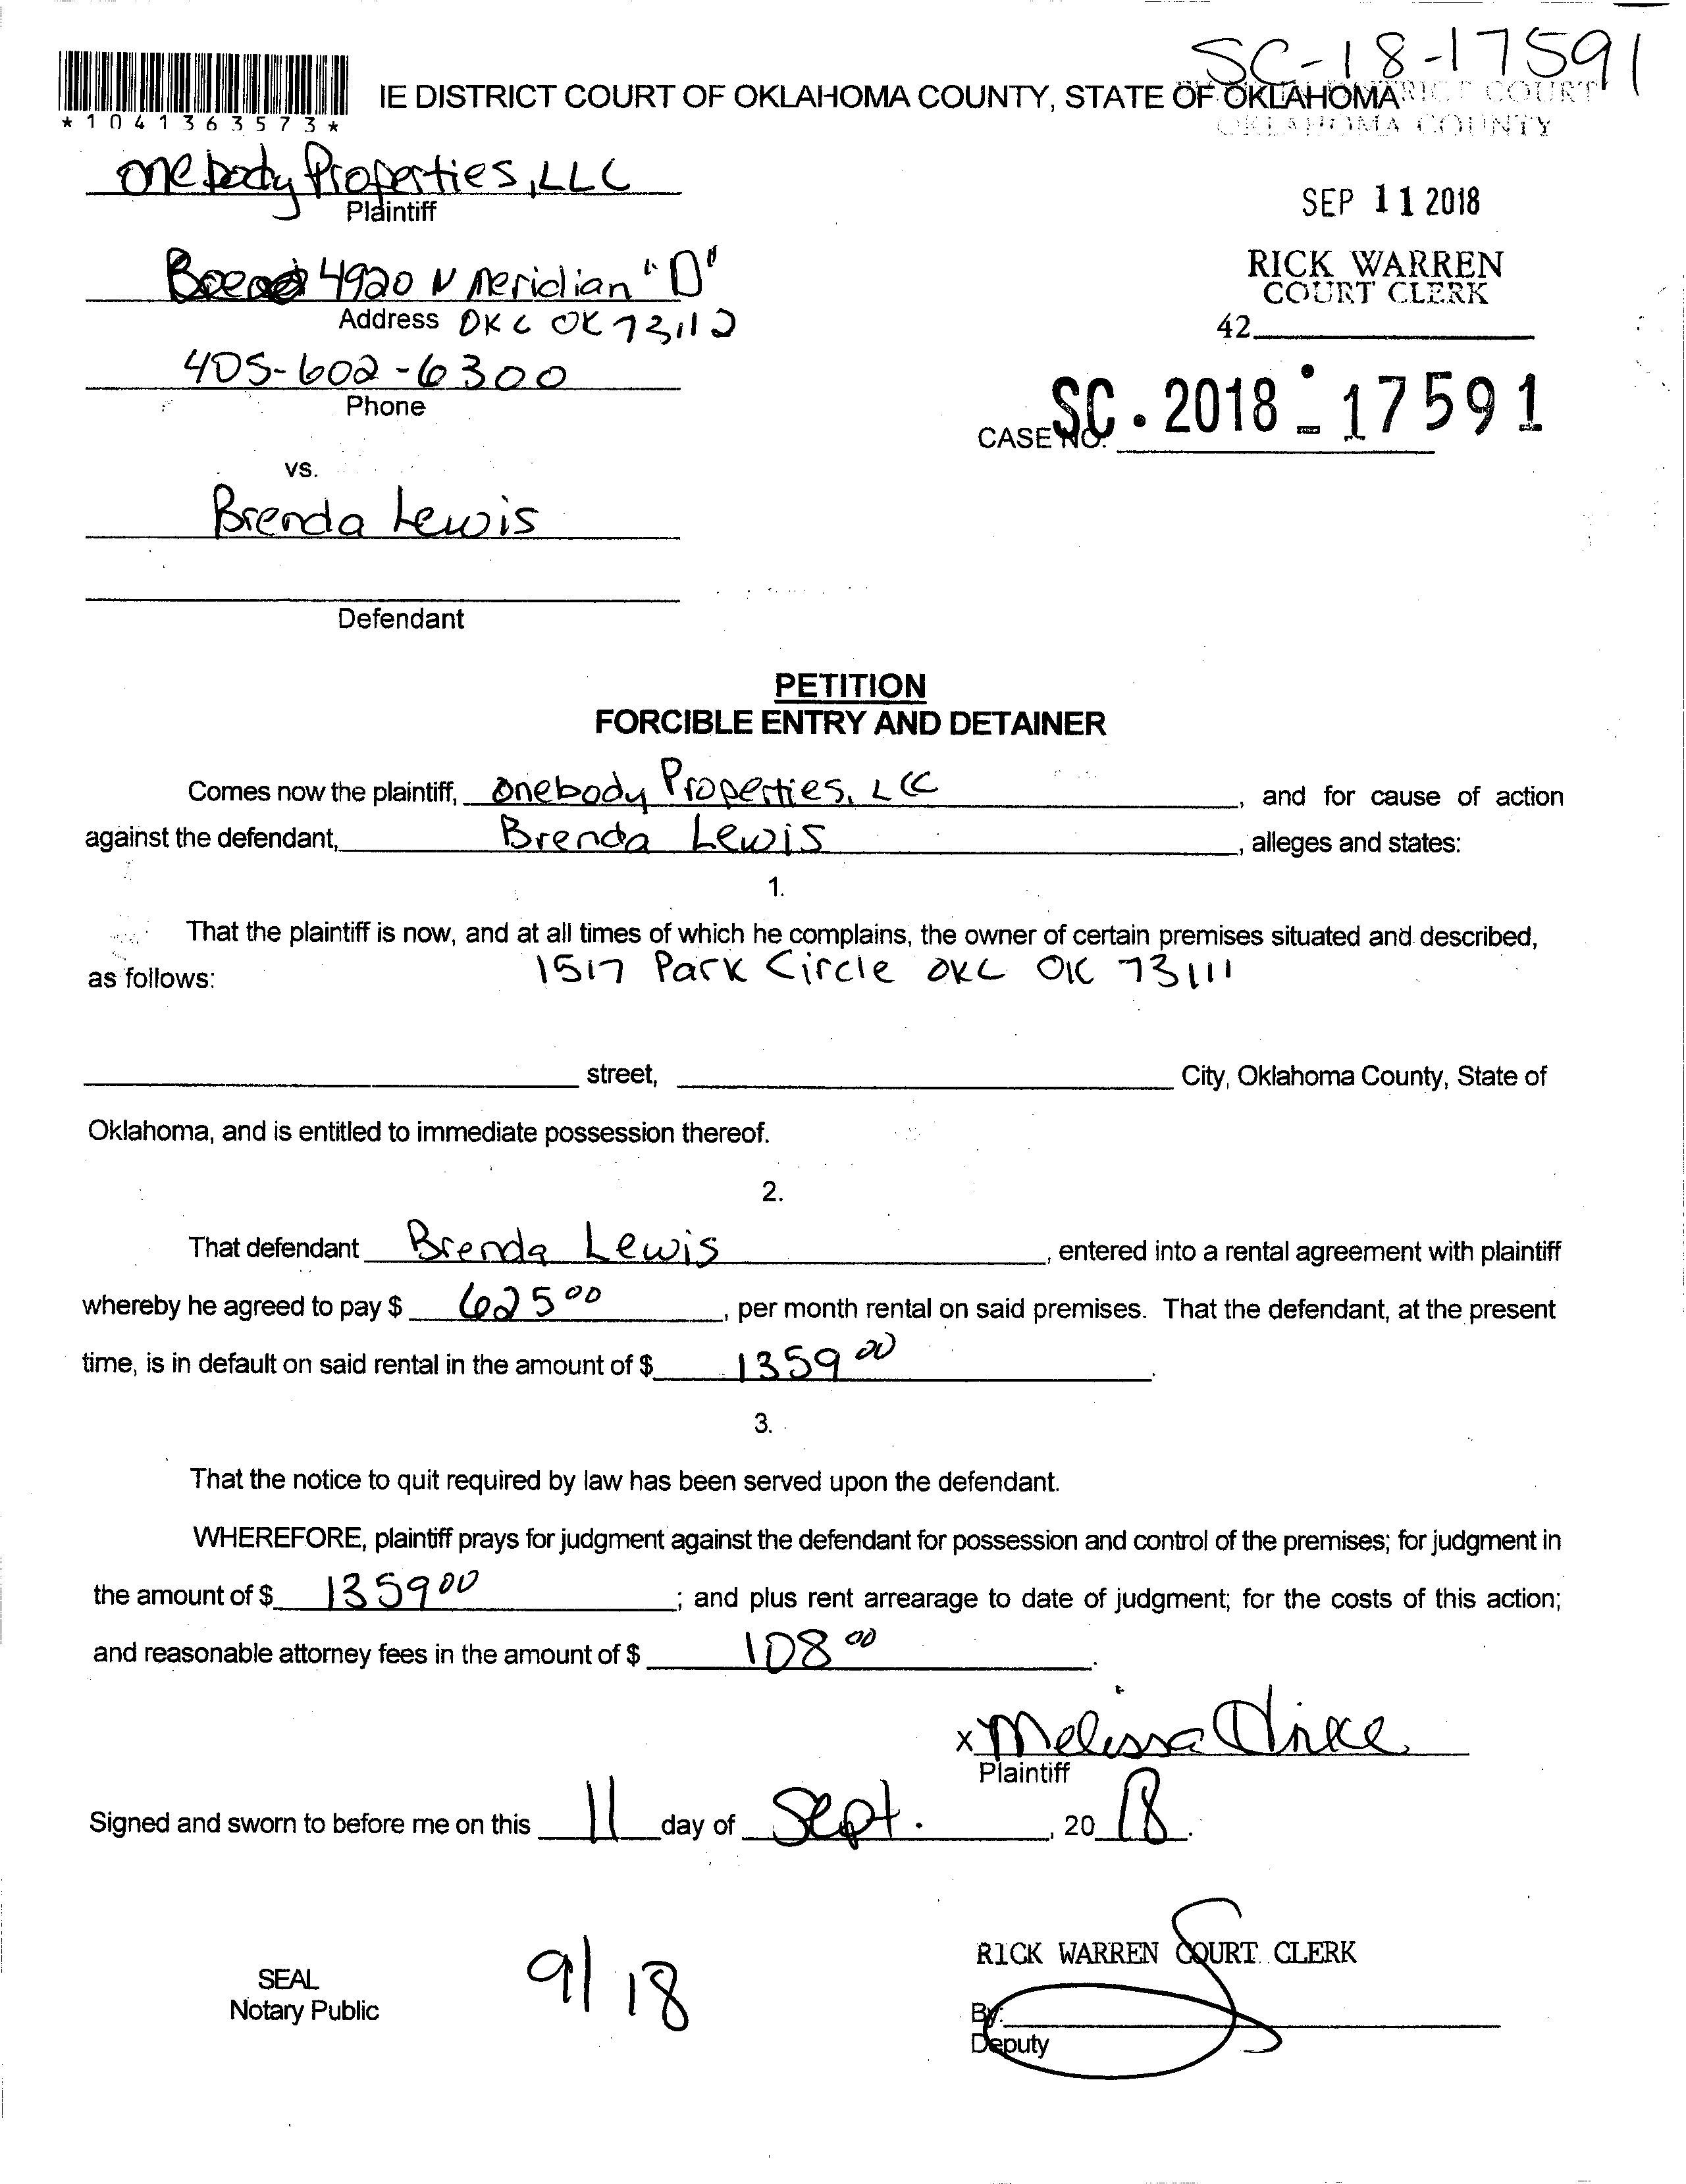 SC-18-17591
IE DISTRICT COURT OF OKLAHOMA COUNTY, STATE OF OKLAHOMA
DISTRICT COURT
OKLAHOMA COUNTY
*1041363573*
onebody Properties, LLC
Plaintiff
SEP 11 2018
4920 N Meridian "D"
RICK WARREN
COURT CLERK
Address OKC OK 73112
42
405-602-6300
Phone
CASE NO. SC-2018-17591
vs.
Brenda Lewis
Defendant
PETITION
FORCIBLE ENTRY AND DETAINER
Comes now the plaintiff, Onebody Properties, LLC, and for cause of action
against the defendant, Brenda Lewis, alleges and states:
1.
That the plaintiff is now, and at all times of which he complains, the owner of certain premises situated and described,
as follows: 1517 Park Circle OKC OK 73111
street, City, Oklahoma County, State of
Oklahoma, and is entitled to immediate possession thereof.
2.
That defendant Brenda Lewis, entered into a rental agreement with plaintiff
whereby he agreed to pay $ 625 00, per month rental on said premises. That the defendant, at the present
time, is in default on said rental in the amount of $ 1359 00.
3.
That the notice to quit required by law has been served upon the defendant.
WHEREFORE, plaintiff prays for judgment against the defendant for possession and control of the premises; for judgment in
the amount of $ 1359 00; and plus rent arrearage to date of judgment; for the costs of this action;
and reasonable attorney fees in the amount of $ 108 00.
x Melissa
Plaintiff
Signed and sworn to before me on this 11 day of Sept., 20 18.
RICK WARREN COURT CLERK
SEAL
Notary Public
9/18
By:
Deputy